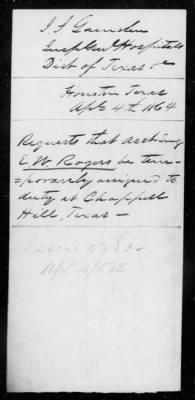 Insp Genl Hospitals
Dist of Texas &c
Houston Texas
Apl 4th 1864
Requests that asst surg
E. W. Rogers be tem-
=porarily assigned to
duty at Chappell
Hill, Texas —
Apl 4/64